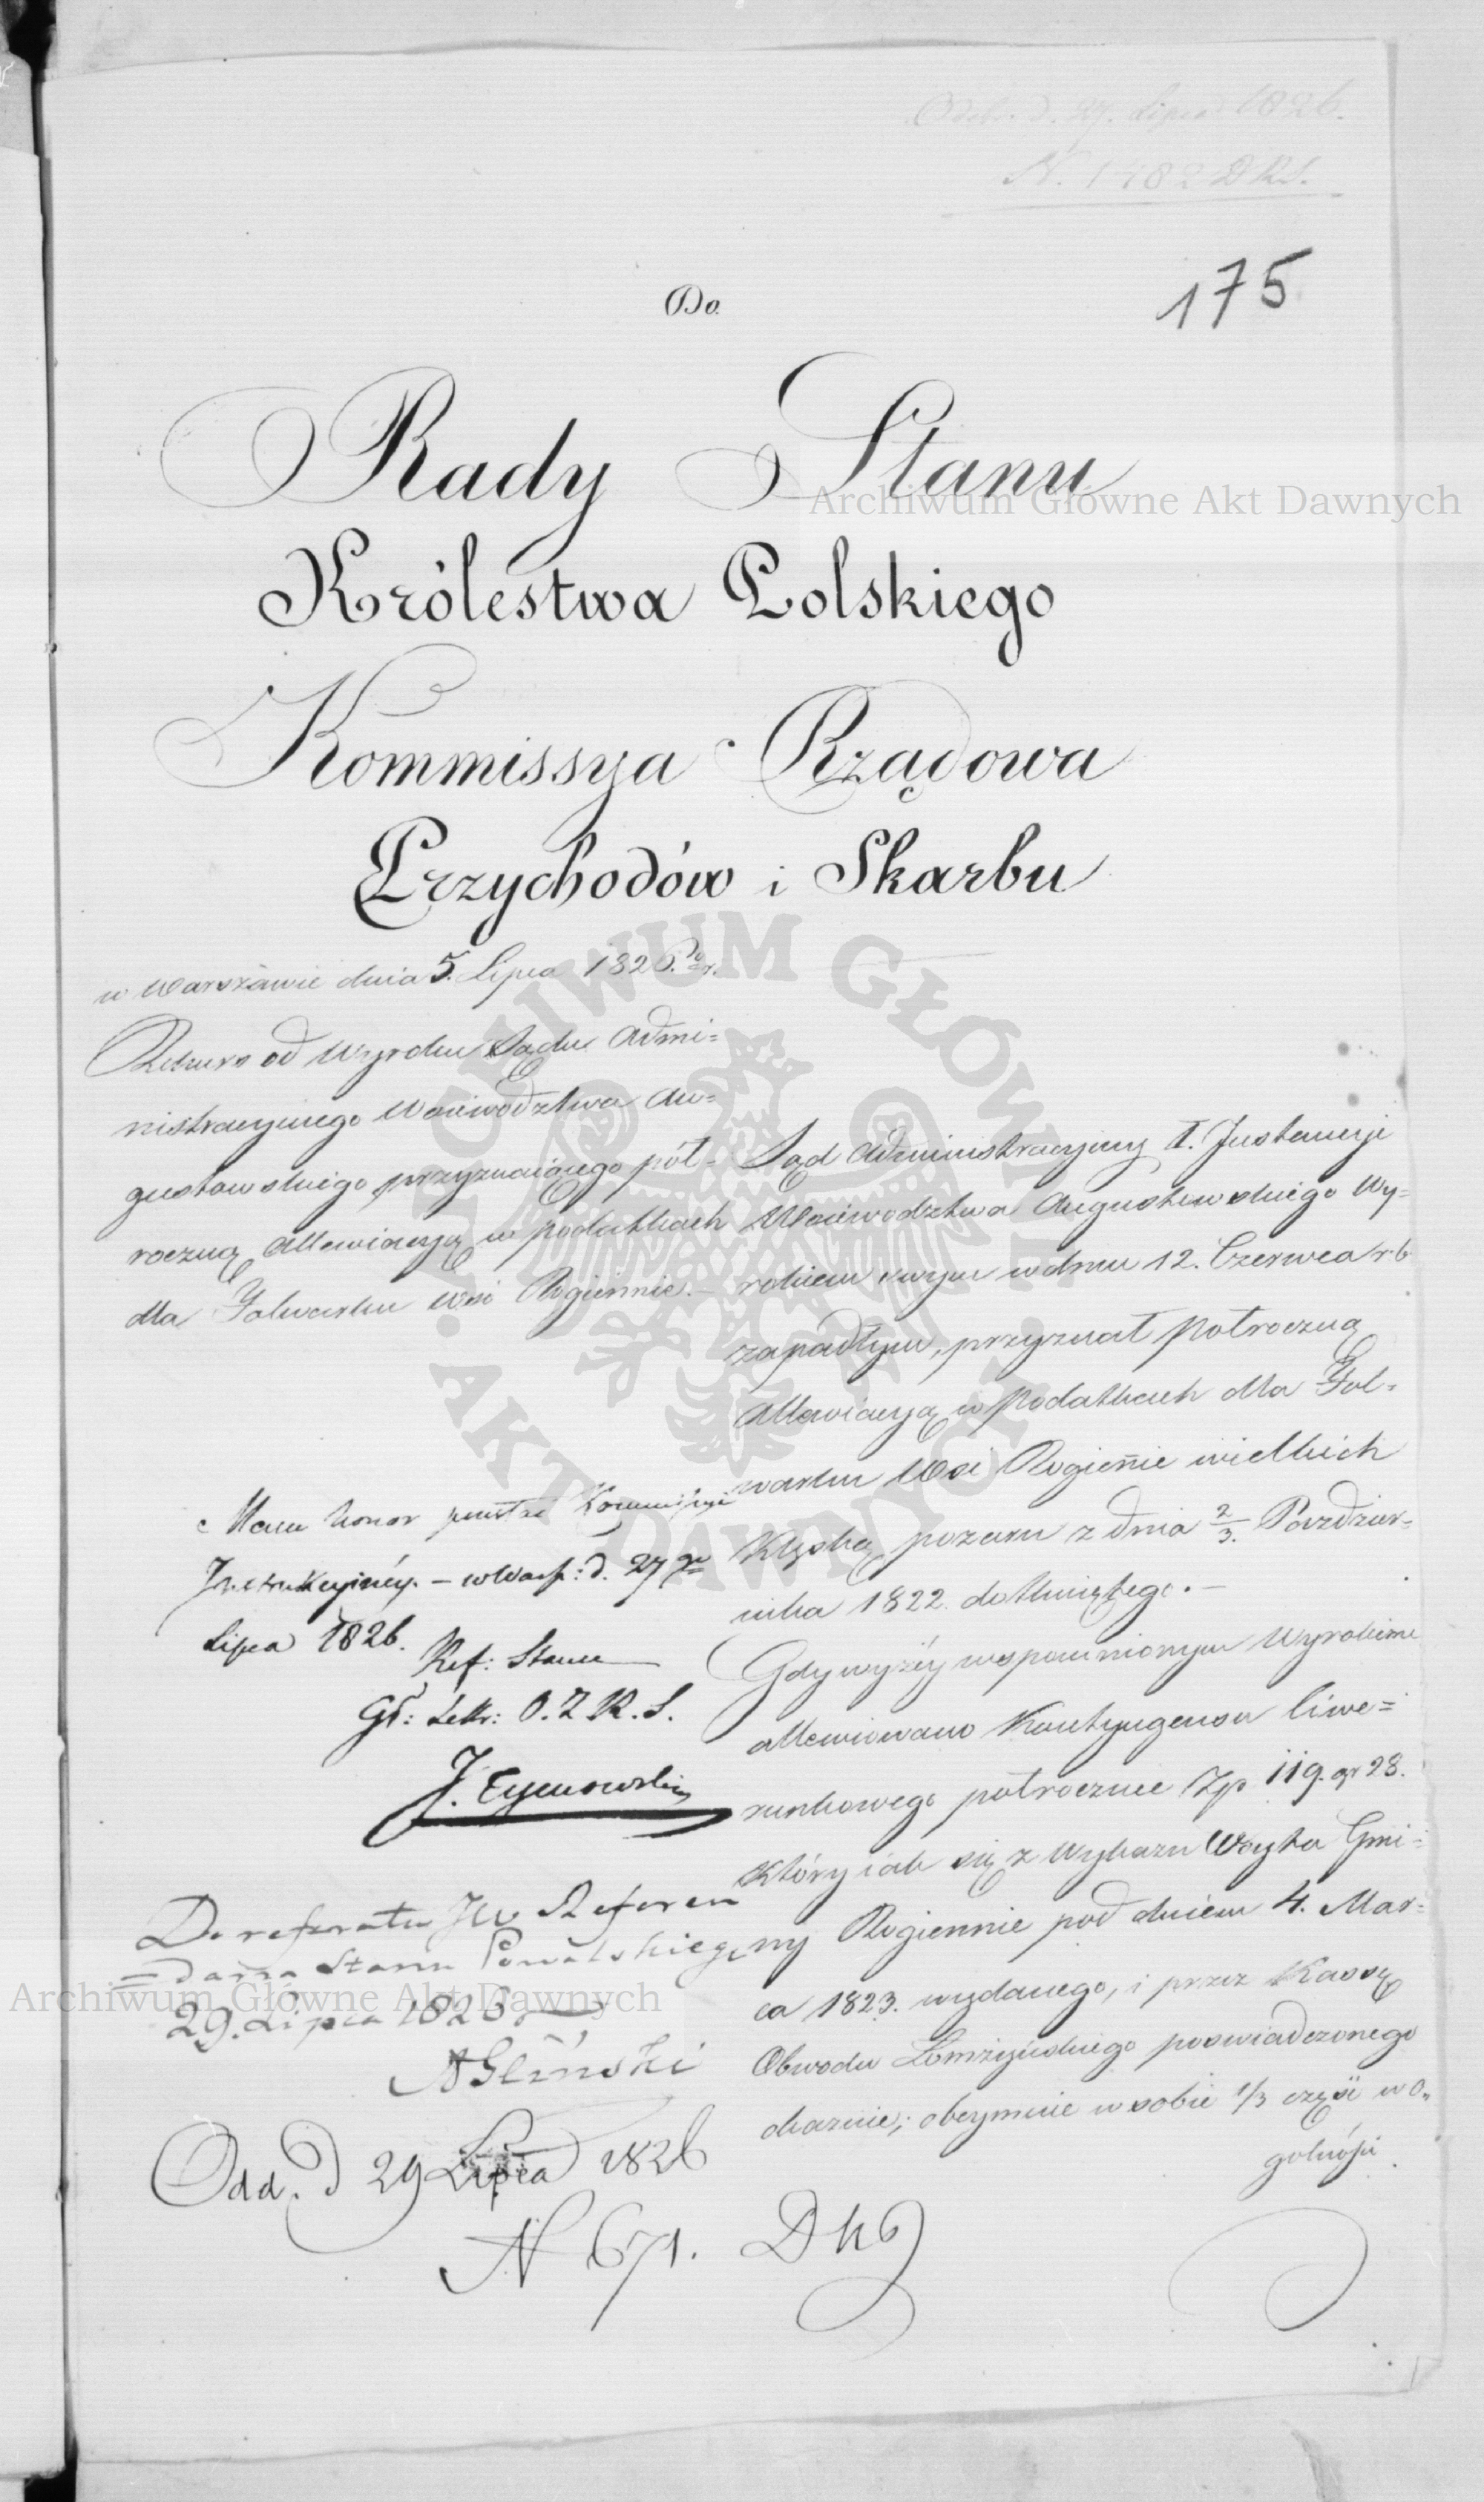 Odeb. d. 27. Lipca 1826.
N. 1182 DRS.
175
Do
Rady Stanu
Królestwa Polskiego
Kommissya Rządowa
Przychodów i Skarbu
w Warszawie dnia 5. Lipca 1826.
Rekurs od Wyroku Sądu Admi=
nistracyinego Woiewodztwa Au=
gustowskiego przyznaiącego pół=
roczną allewiacyą w podatkach
dla Folwarku wsi Rogiennie.–
Sąd Administracyiny I. Instancyi
Woiewodztwa Augustowskiego Wy=
rokiem swym w dniu 12. Czerwca r.b.
zapadłym, przyznał półroczną
allewiacyą w podatkach dla Fol=
warku Wsi Rogiennie wielkich
klęską pożaru z dnia 2/3. Pazdzier=
nika 1822 dotkniętego.–
Gdy wyżéy wspomnionym Wyrokiem
allewiowano Kontyngensu liwe=
runkowego półrocznie Złp 119. gr 28.
który iak się z Wykazu Woyta Gmi=
ny Rogiennie pod dniem 4. Mar=
ca 1823. wydanego, i przez Kassę
Obwodu Łomżyńskiego poświadczonego
okazuie; obeymuie w sobie 1/3 części w o=
gólności
Mam honor Kommissyi
Instrukcyinéy. – w Warsz: d. 27 go
Lipca 1826.
Ref: Stanu
Gł: Sekr: O. Z. R. S.
J. Tymowski
Do referatu JW Referen
=darza Stanu
29. Lipca 1826
AGliński
Odd. d 29 Lipca 1826
N 671.
Archiwum Główne Akt Dawnych
Archiwum Główne Akt Dawnych
ARCHIWUM GŁÓWNE AKT DAWNYCH